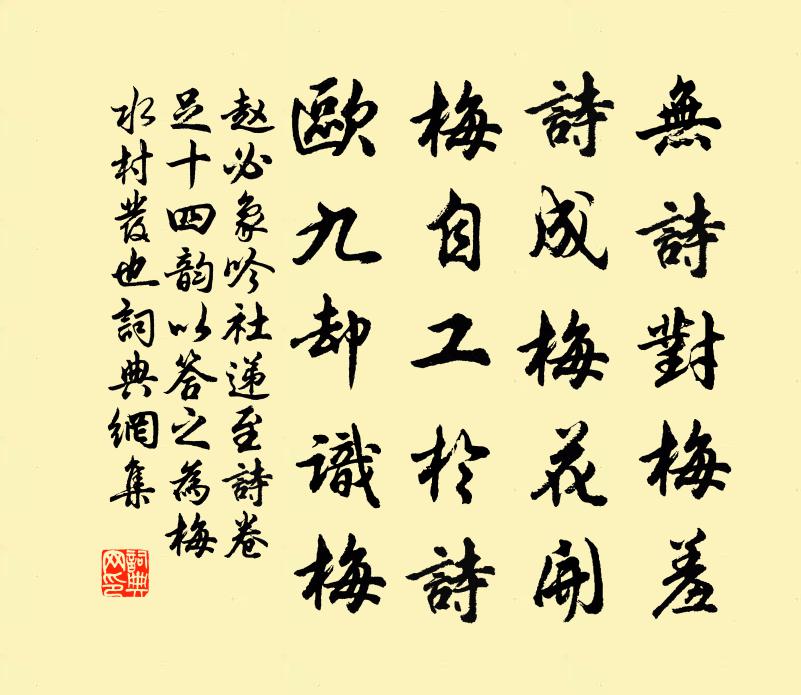 無詩對梅羞
詩成梅花開
梅自工於詩
歐九却識梅
赵必象吟社递至詩卷
足十四韵以答之為梅
水村發也詞典網集
詞典網印